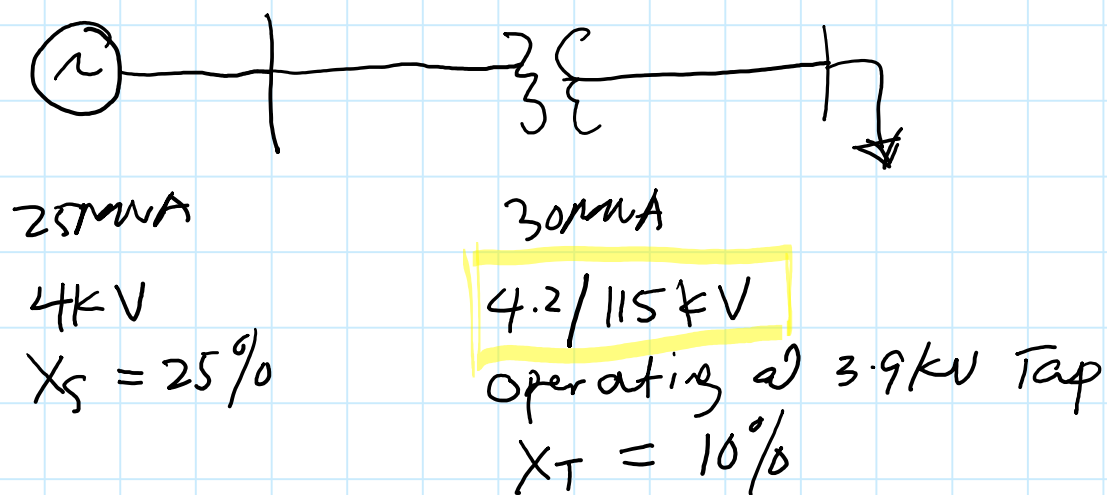 25MVA
4kV
XS = 25%
30MVA
4.2/115kV
operating @ 3.9kV Tap
XT = 10%